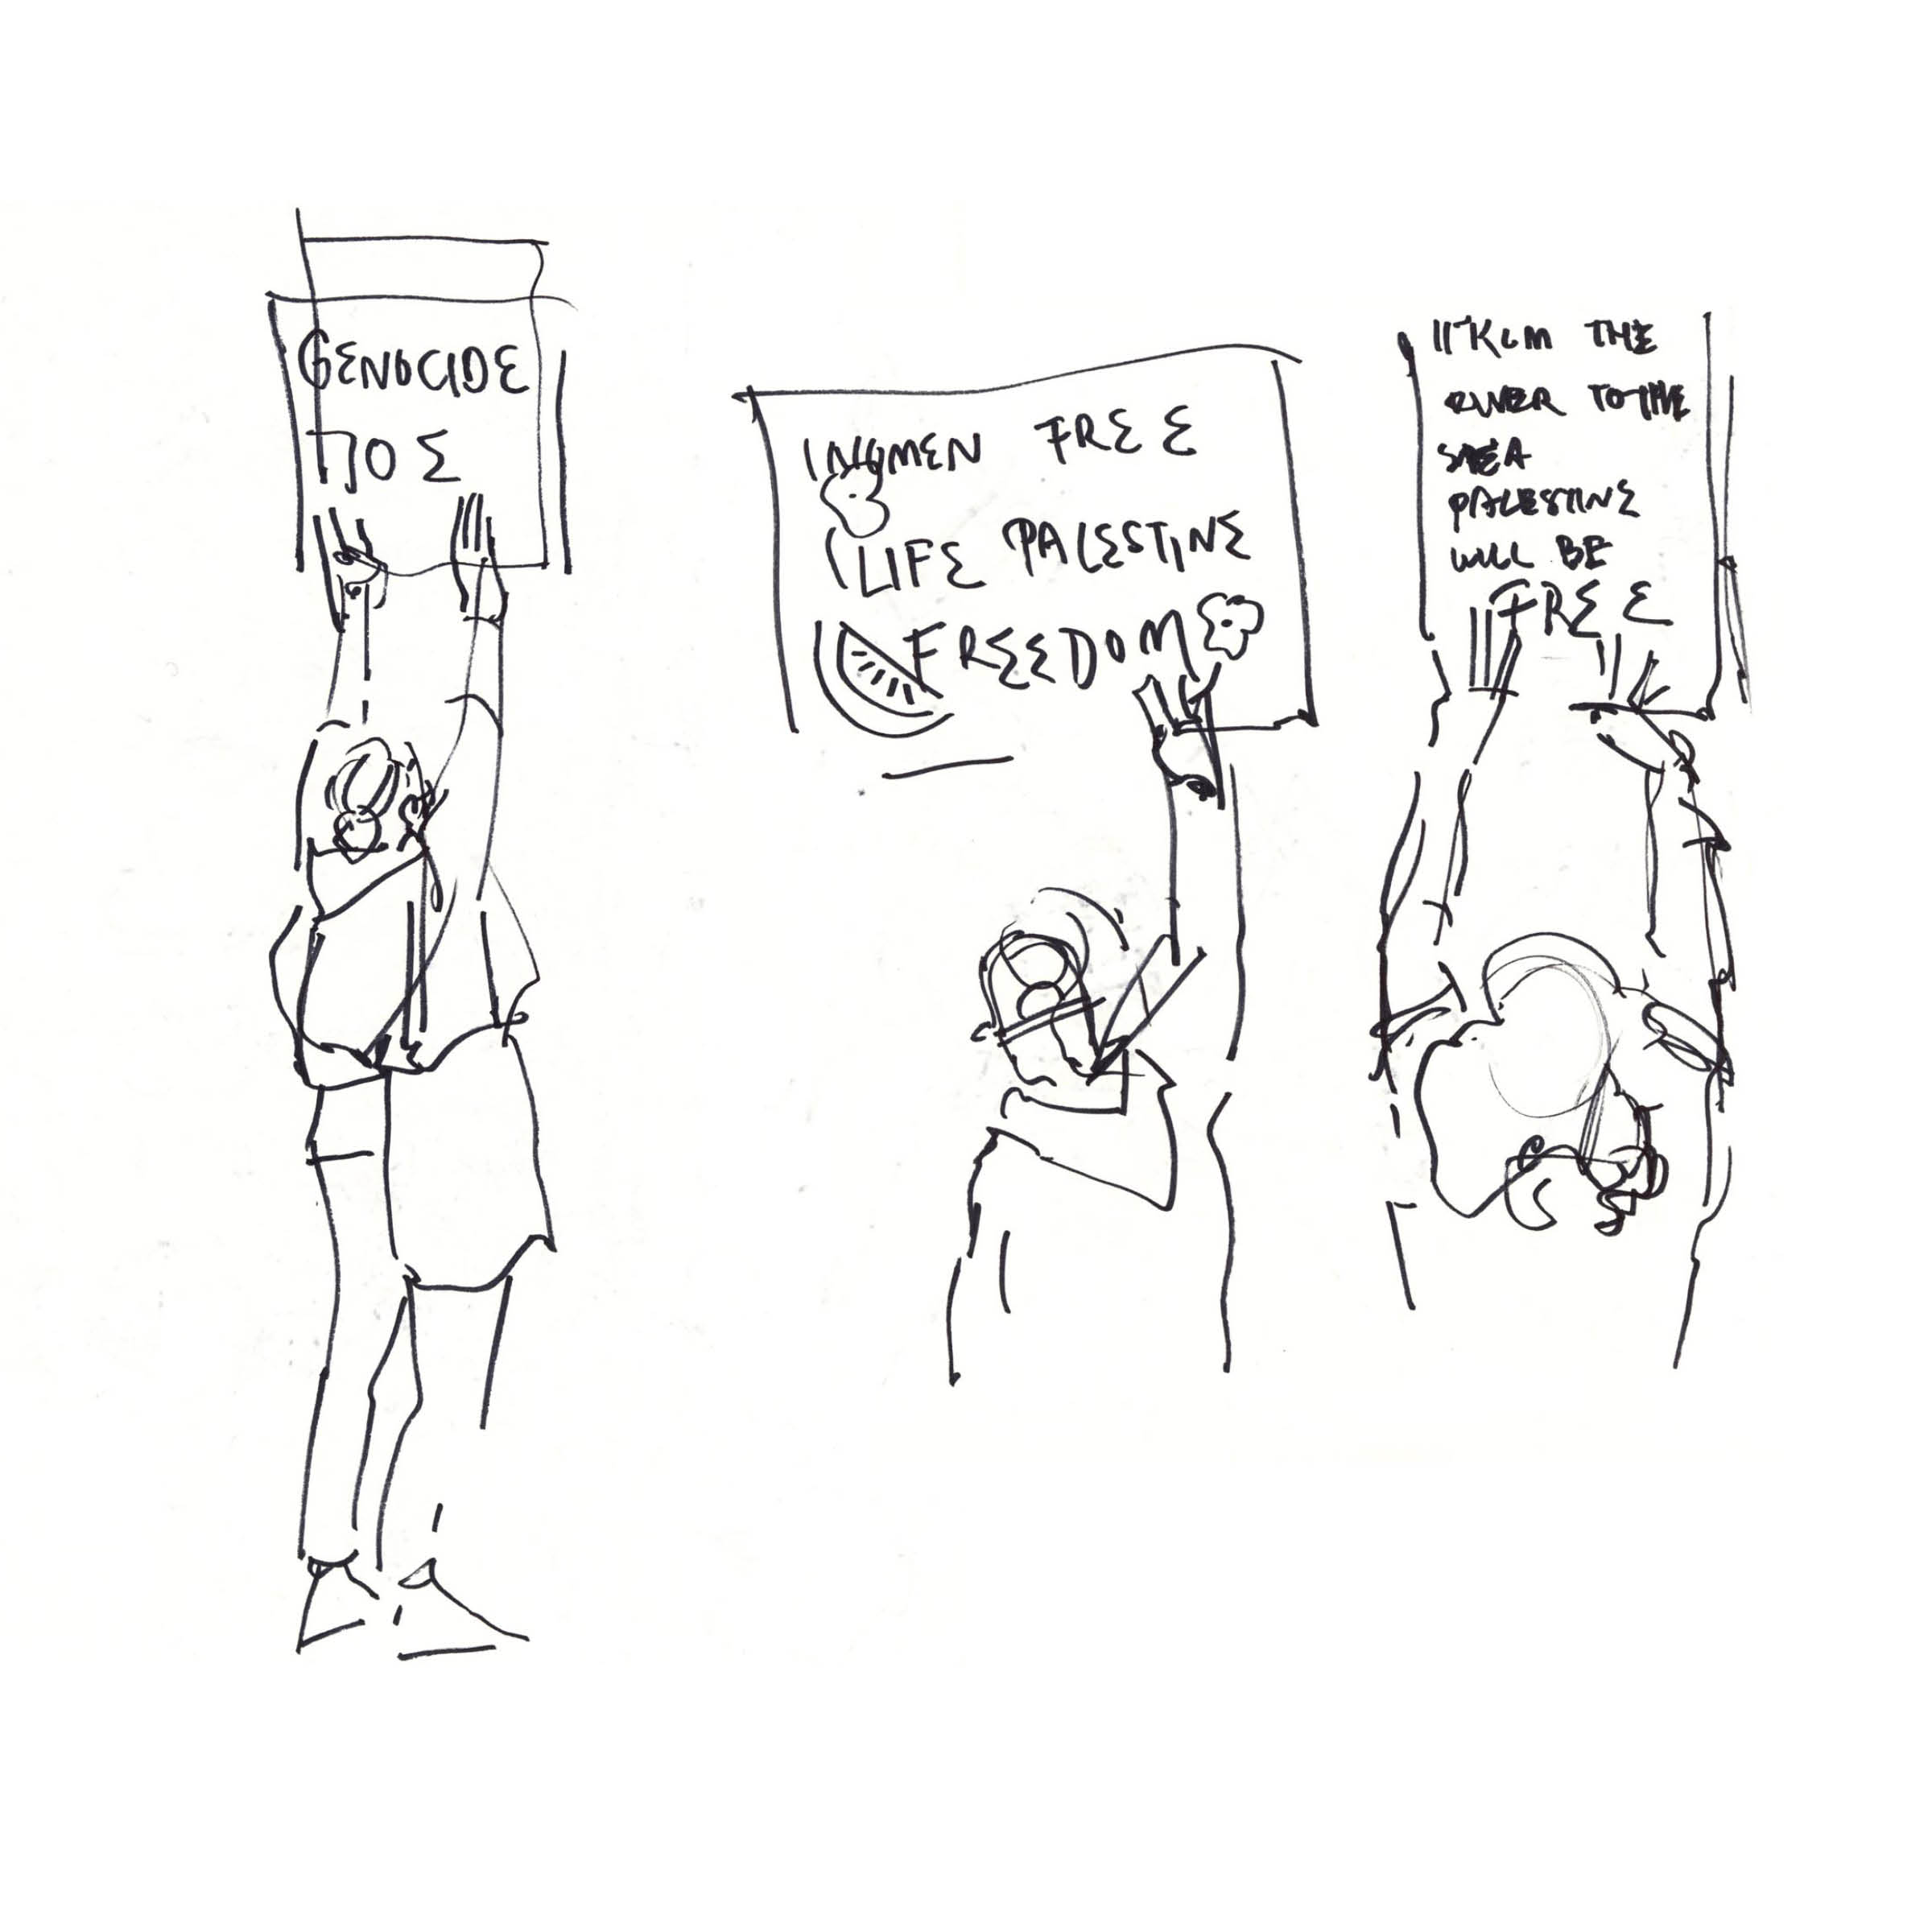 GENOCIDE
JOE
WOMEN FREE
LIFE PALESTINE
FREEDOM
THE
RIVER TO THE
SEA
PALESTINE
WILL BE
FREE